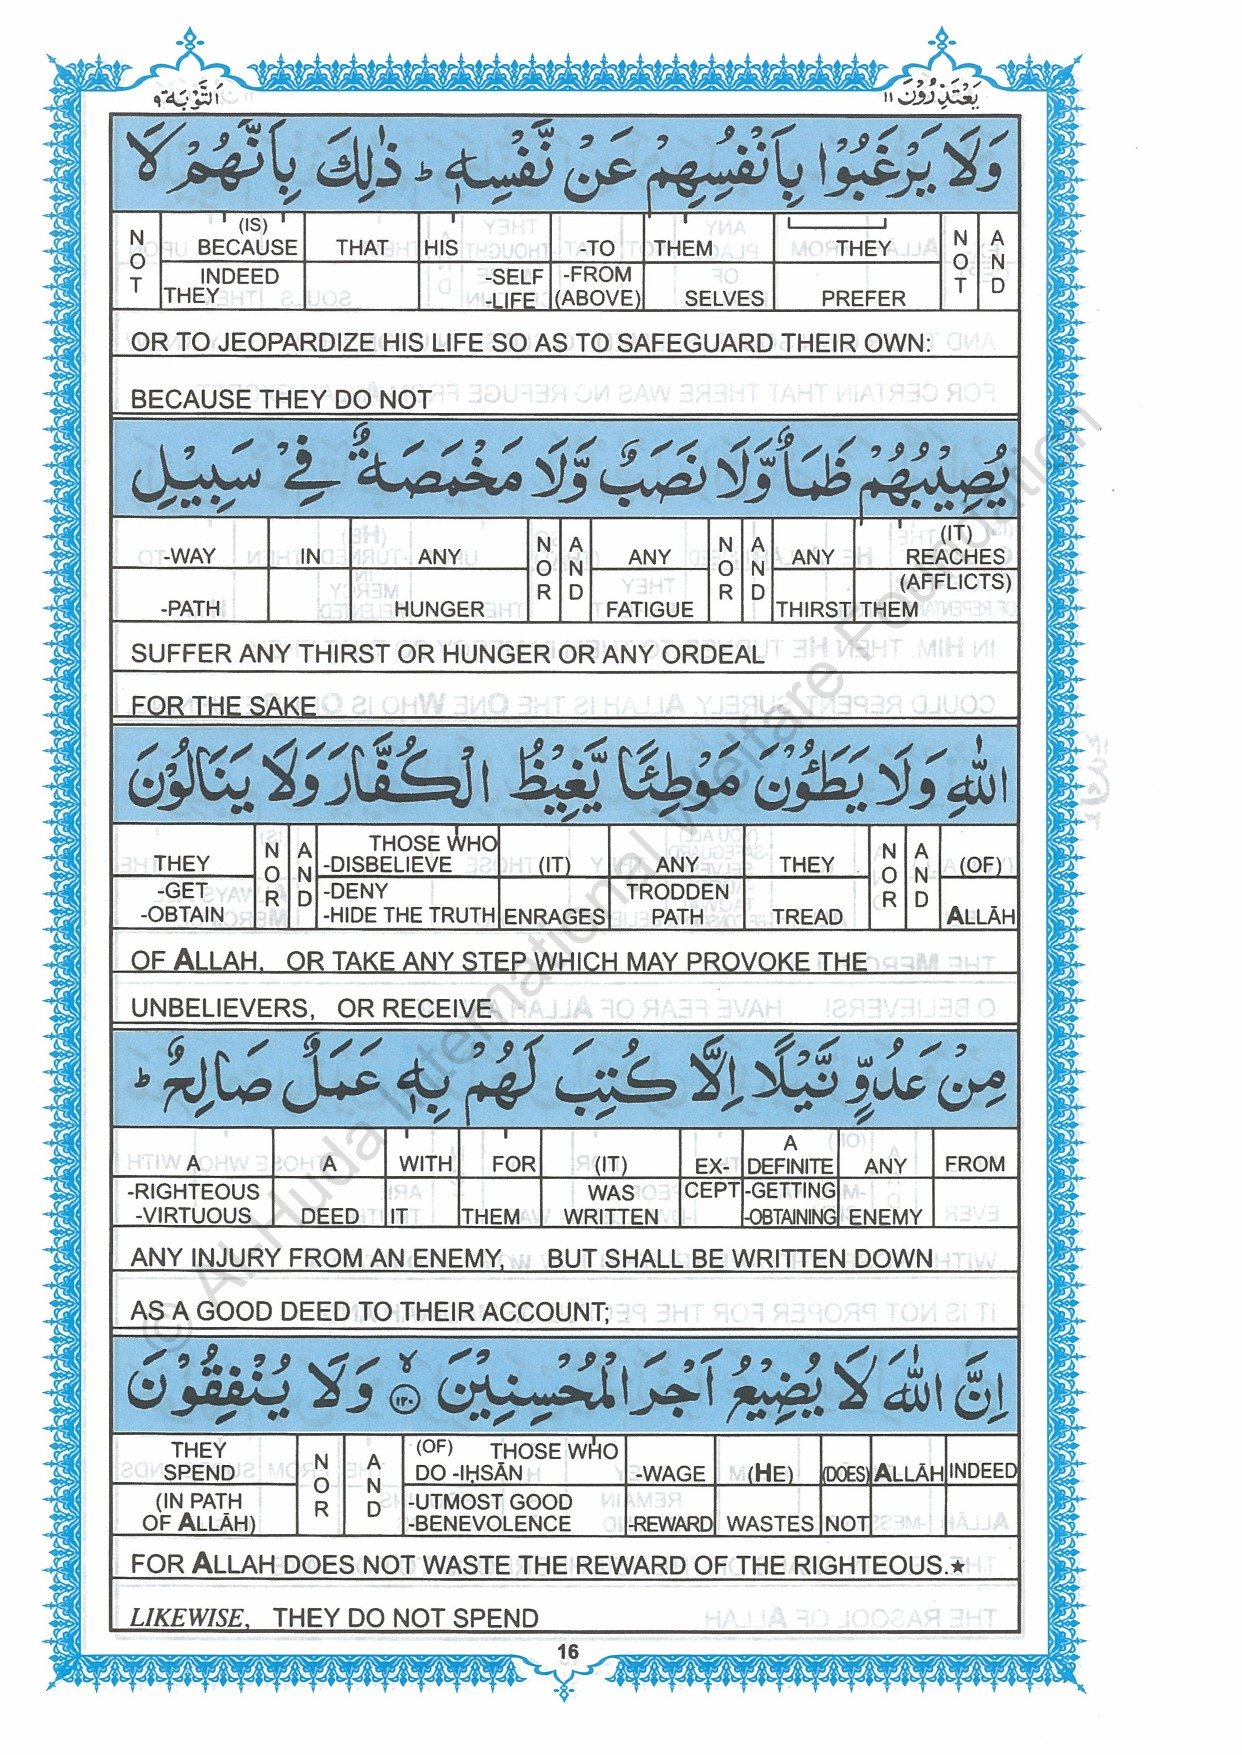 يَعْتَذِرُوْنَ ١١
اَلتَّوْبَة ٩
وَلَا يَرْغَبُوْا بِاَنْفُسِهِمْ عَنْ نَّفْسِهٖ ؕ ذٰلِكَ بِاَنَّهُمْ لَا
AND NOT THEY THEM -TO HIS THAT (IS) BECAUSE NOT
PREFER SELVES -FROM (ABOVE) -SELF -LIFE INDEED THEY
OR TO JEOPARDIZE HIS LIFE SO AS TO SAFEGUARD THEIR OWN:
BECAUSE THEY DO NOT
يُصِيْبُهُمْ ظَمَاٌ وَّلَا نَصَبٌ وَّلَا مَخْمَصَةٌ فِيْ سَبِيْلِ
(IT) REACHES ANY AND NOR ANY AND NOR ANY IN -WAY
(AFFLICTS) THEM THIRST FATIGUE HUNGER -PATH
SUFFER ANY THIRST OR HUNGER OR ANY ORDEAL
FOR THE SAKE
اللّٰهِ وَلَا يَطَـُٔوْنَ مَوْطِئًا يَّغِيْظُ الْكُفَّارَ وَلَا يَنَالُوْنَ
(OF) AND NOR THEY ANY (IT) THOSE WHO -DISBELIEVE AND NOR THEY
ALLĀH TREAD TRODDEN PATH ENRAGES -DENY -HIDE THE TRUTH -GET -OBTAIN
OF ALLAH, OR TAKE ANY STEP WHICH MAY PROVOKE THE
UNBELIEVERS, OR RECEIVE
مِنْ عَدُوٍّ نَّيْلًا اِلَّا كُتِبَ لَهُمْ بِهٖ عَمَلٌ صَالِحٌ ؕ
FROM ANY A DEFINITE EX- (IT) FOR WITH A A
ENEMY -GETTING -OBTAINING CEPT WAS WRITTEN THEM IT DEED -RIGHTEOUS -VIRTUOUS
ANY INJURY FROM AN ENEMY, BUT SHALL BE WRITTEN DOWN
AS A GOOD DEED TO THEIR ACCOUNT;
اِنَّ اللّٰهَ لَا يُضِيْعُ اَجْرَ الْمُحْسِنِيْنَ ۙ ١٢٠ وَلَا يُنْفِقُوْنَ
INDEED ALLĀH (DOES) (HE) -WAGE (OF) THOSE WHO DO -IḤSĀN AND NOR THEY SPEND
NOT WASTES -REWARD -UTMOST GOOD -BENEVOLENCE (IN PATH OF ALLĀH)
FOR ALLAH DOES NOT WASTE THE REWARD OF THE RIGHTEOUS.★
LIKEWISE, THEY DO NOT SPEND
16
© Al-Huda International Welfare Foundation